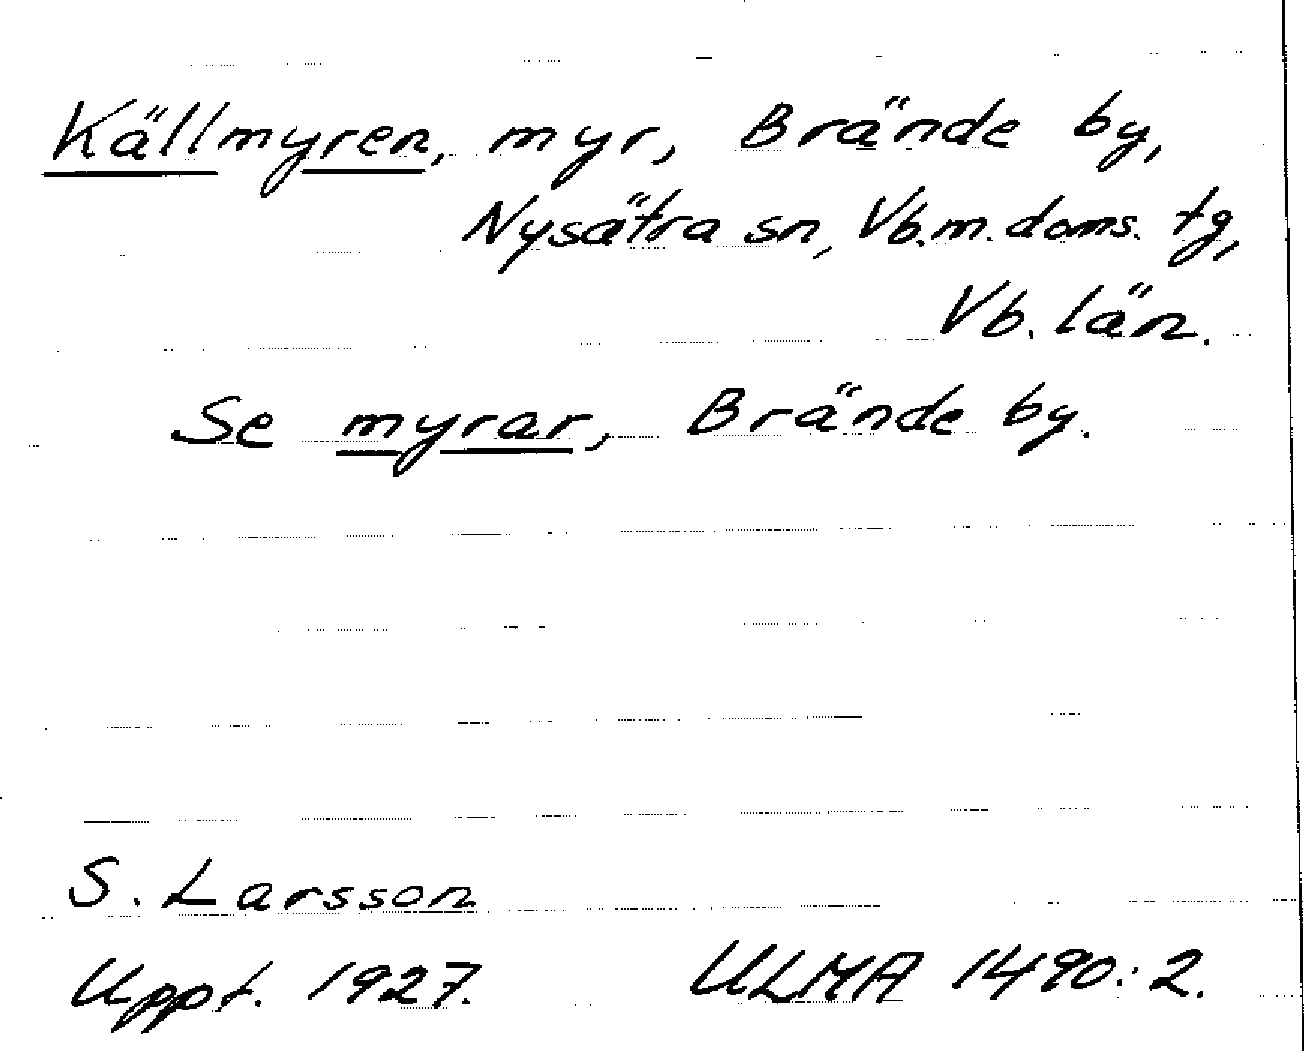 Källmyren, myr, Brände by,
Nysätra sn, Vb.m.doms. tg,
Vb. län.
Se myrar, Brände by.
S. Larsson
Uppt. 1927. ULMA 1490:2.